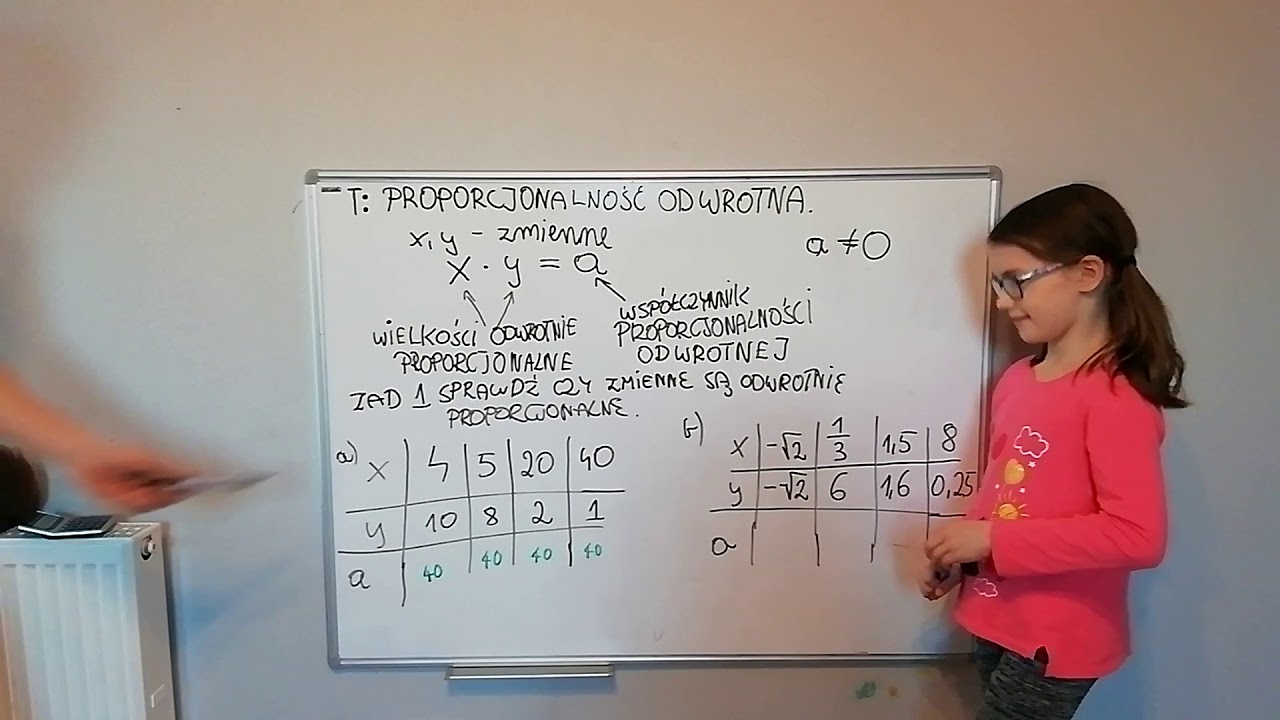 T: PROPORCJONALNOŚĆ ODWROTNA.
x, y - zmienne
a ≠ 0
x · y = a
WIELKOŚCI ODWROTNIE
PROPORCJONALNE
WSPÓŁCZYNNIK
PROPORCJONALNOŚCI
ODWROTNEJ
ZAD 1 SPRAWDŹ CZY ZMIENNE SĄ ODWROTNIE
PROPORCJONALNE.
a)
x 4 5 20 40
y 10 8 2 1
a 40 40 40 40
b)
x -√2 1/3 1,5 8
y -√2 6 1,6 0,25
a